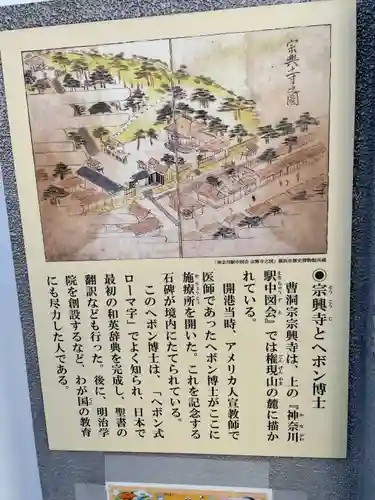 宗興寺之圖
「神奈川駅中図会 宗興寺之図」横浜市歴史博物館所蔵
◉宗興寺とヘボン博士
曹洞宗宗興寺は、上の『神奈川
駅中図会』では権現山の麓に描か
れている。
開港当時、アメリカ人宣教師で
医師であったヘボン博士がここに
施療所を開いた。これを記念する
石碑が境内にたてられている。
このヘボン博士は、「ヘボン式
ローマ字」でよく知られ、日本で
最初の和英辞典を完成し、聖書の
翻訳なども行った。後に、明治学
院を創設するなど、わが国の教育
にも尽力した人である。